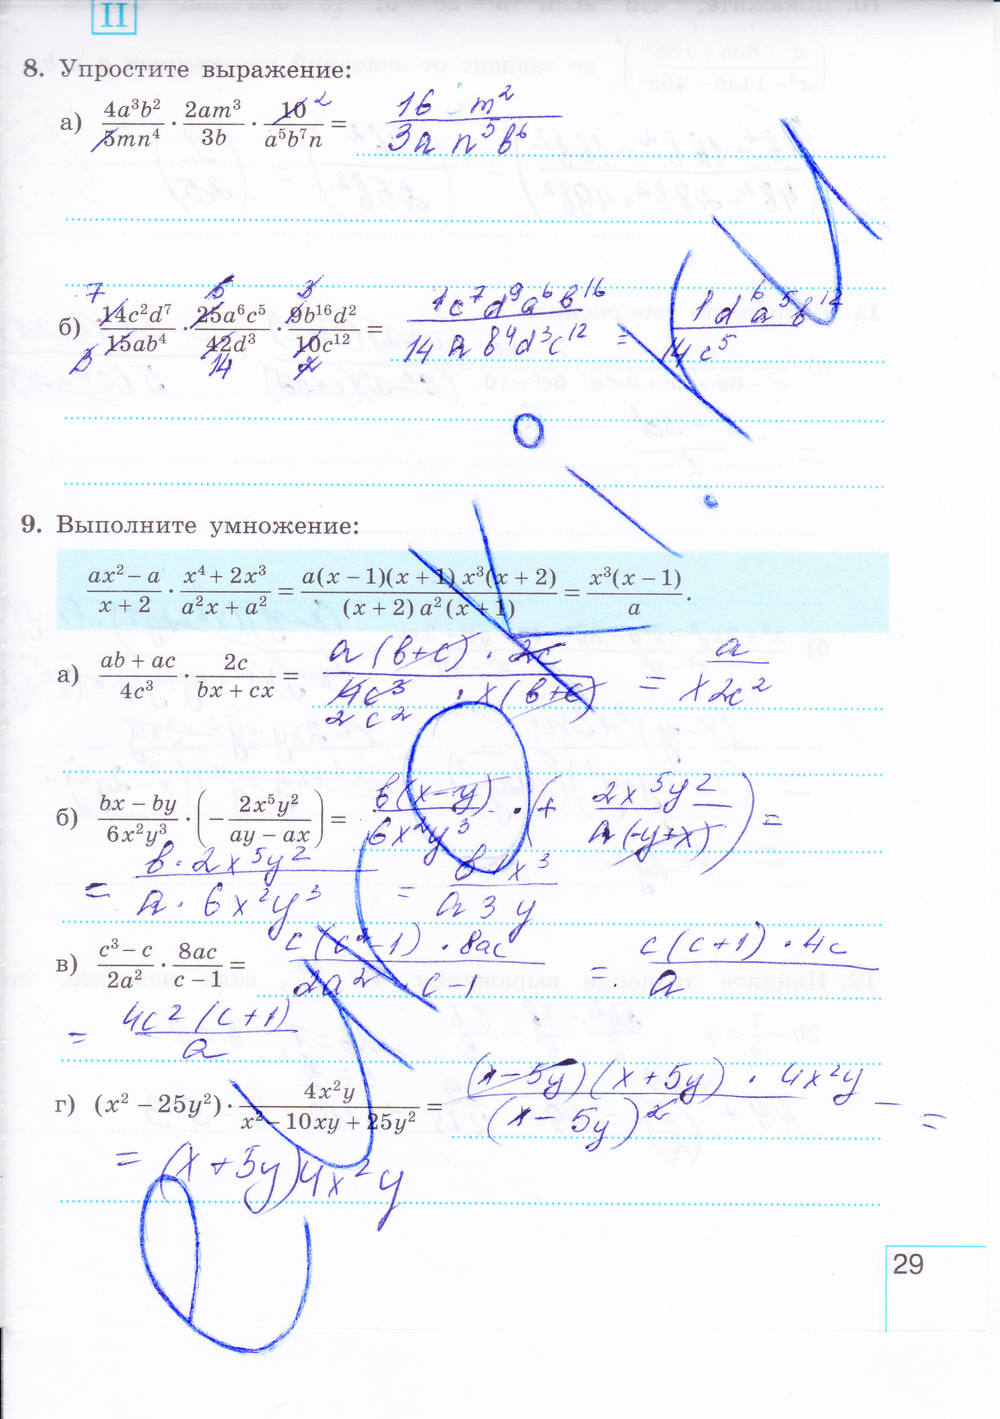 II
8. Упростите выражение:
а) 4a³b²/5mn⁴ · 2am³/3b · 10/a⁵b⁷n = 16 m²/3a n⁵b⁶
2
7 5 3
б) 14c²d⁷/15ab⁴ · 25a⁶c⁵/42d³ · 9b¹⁶d²/10c¹² = 1c⁷d⁹a⁶b¹⁶/14 a b⁴d³c¹² = 1d⁶a⁵b¹²/14c⁵
3 14 2
9. Выполните умножение:
ax² − a/x + 2 · x⁴ + 2x³/a²x + a² = a(x − 1)(x + 1) x³(x + 2)/(x + 2) a²(x + 1) = x³(x − 1)/a.
а) ab + ac/4c³ · 2c/bx + cx = a(b+c) · 2c/4c³ · x(b+c) = a/x2c²
2c²
б) bx − by/6x²y³ · (− 2x⁵y²/ay − ax) = b(x−y)/6x²y³ · (+ 2x⁵y²/a(-y+x)) =
= b·2x⁵y²/a·6x²y³ = b x³/a3y
в) c³ − c/2a² · 8ac/c − 1 = c(c²−1) · 8ac/2a² · c−1 = c(c+1)·4c/a
= 4c²(c+1)/a
г) (x² − 25y²) · 4x²y/x² − 10xy + 25y² = (x−5y)(x+5y) · 4x²y/(x−5y)² =
= (x+5y)4x²y
29